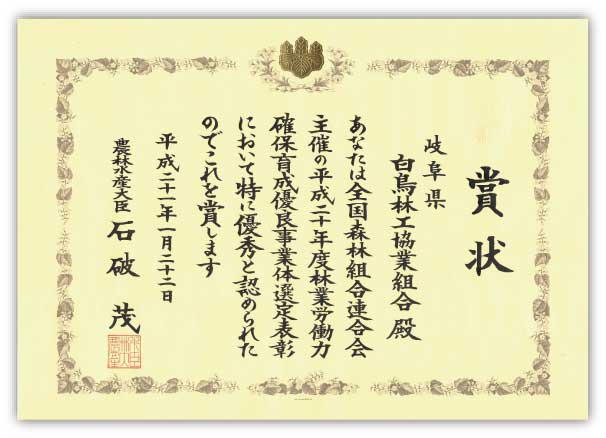 賞状
岐阜県
白鳥林工協業組合殿
あなたは全国森林組合連合会
主催の平成二十年度林業労働力
確保育成優良事業体選定表彰
において特に優秀と認められた
のでこれを賞します
平成二十一年一月二十二日
農林水産大臣 石破 茂